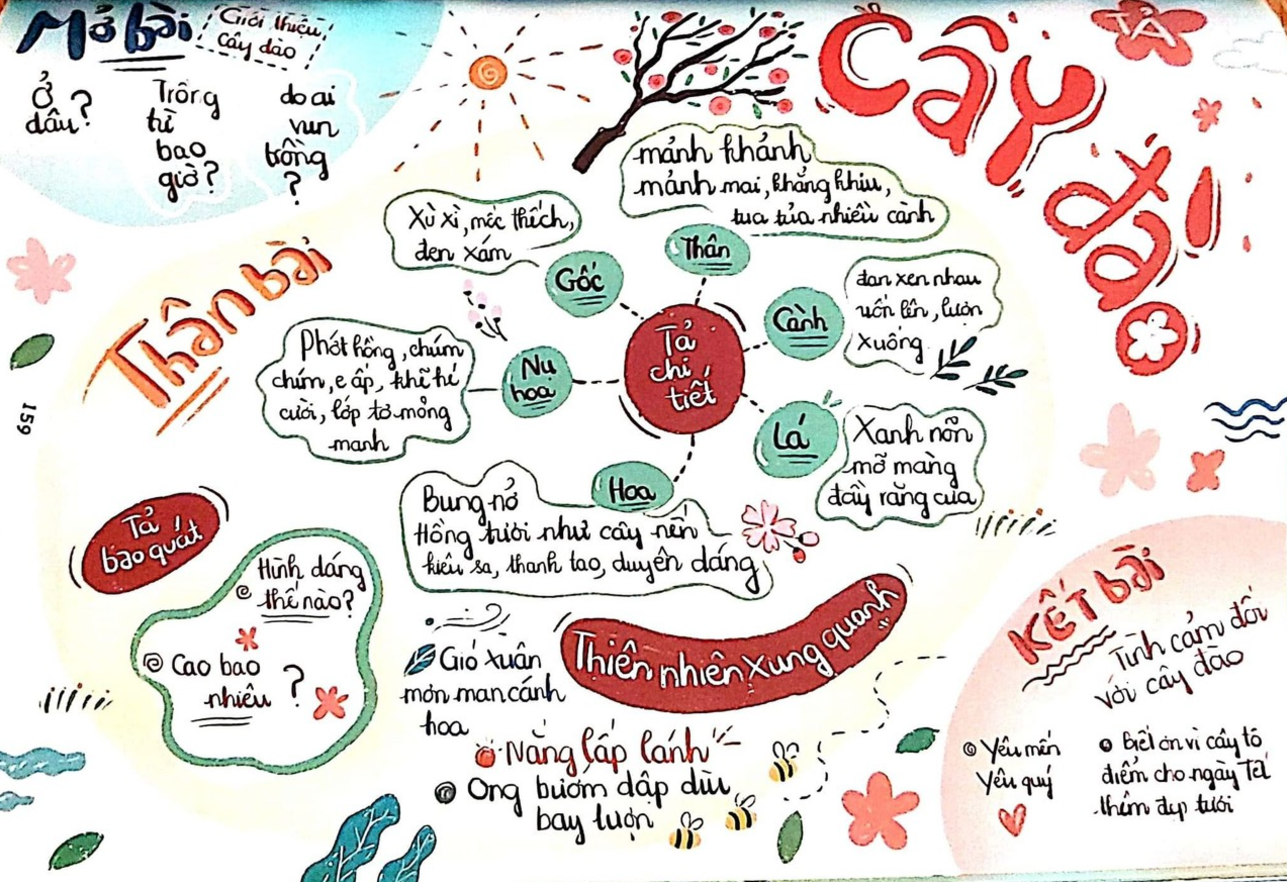 TẢ
Cây đào!
Mở bài
Giới thiệu
cây đào
Ở
đâu?
Trồng
từ
bao
giờ?
do ai
vun
trồng
?
Thân bài
Tả
bao quát
Hình dáng
thế nào?
Cao bao
nhiêu ?
Tả
chi
tiết
Gốc
Xù xì, mốc thếch,
đen xám
Thân
mảnh khảnh
mảnh mai, khẳng khiu,
tua tủa nhiều cành
Cành
đan xen nhau
uốn lên, lượn
xuống
Lá
Xanh nõn
mỡ màng
đầy răng cưa
Hoa
Bung nở
Hồng tươi như cây nến
kiêu sa, thanh tao, duyên dáng
Nụ
hoa
Phớt hồng, chúm
chím, e ấp, khẽ hé
cười, lớp tơ mỏng
manh
Thiên nhiên xung quanh
Gió xuân
mơn man cánh
hoa
Nắng lấp lánh
Ong bướm dập dìu
bay lượn
KẾT bài
Tình cảm đối
với cây đào
Yêu mến
Yêu quý
Biết ơn vì cây tô
điểm cho ngày Tết
thêm đẹp tươi
159